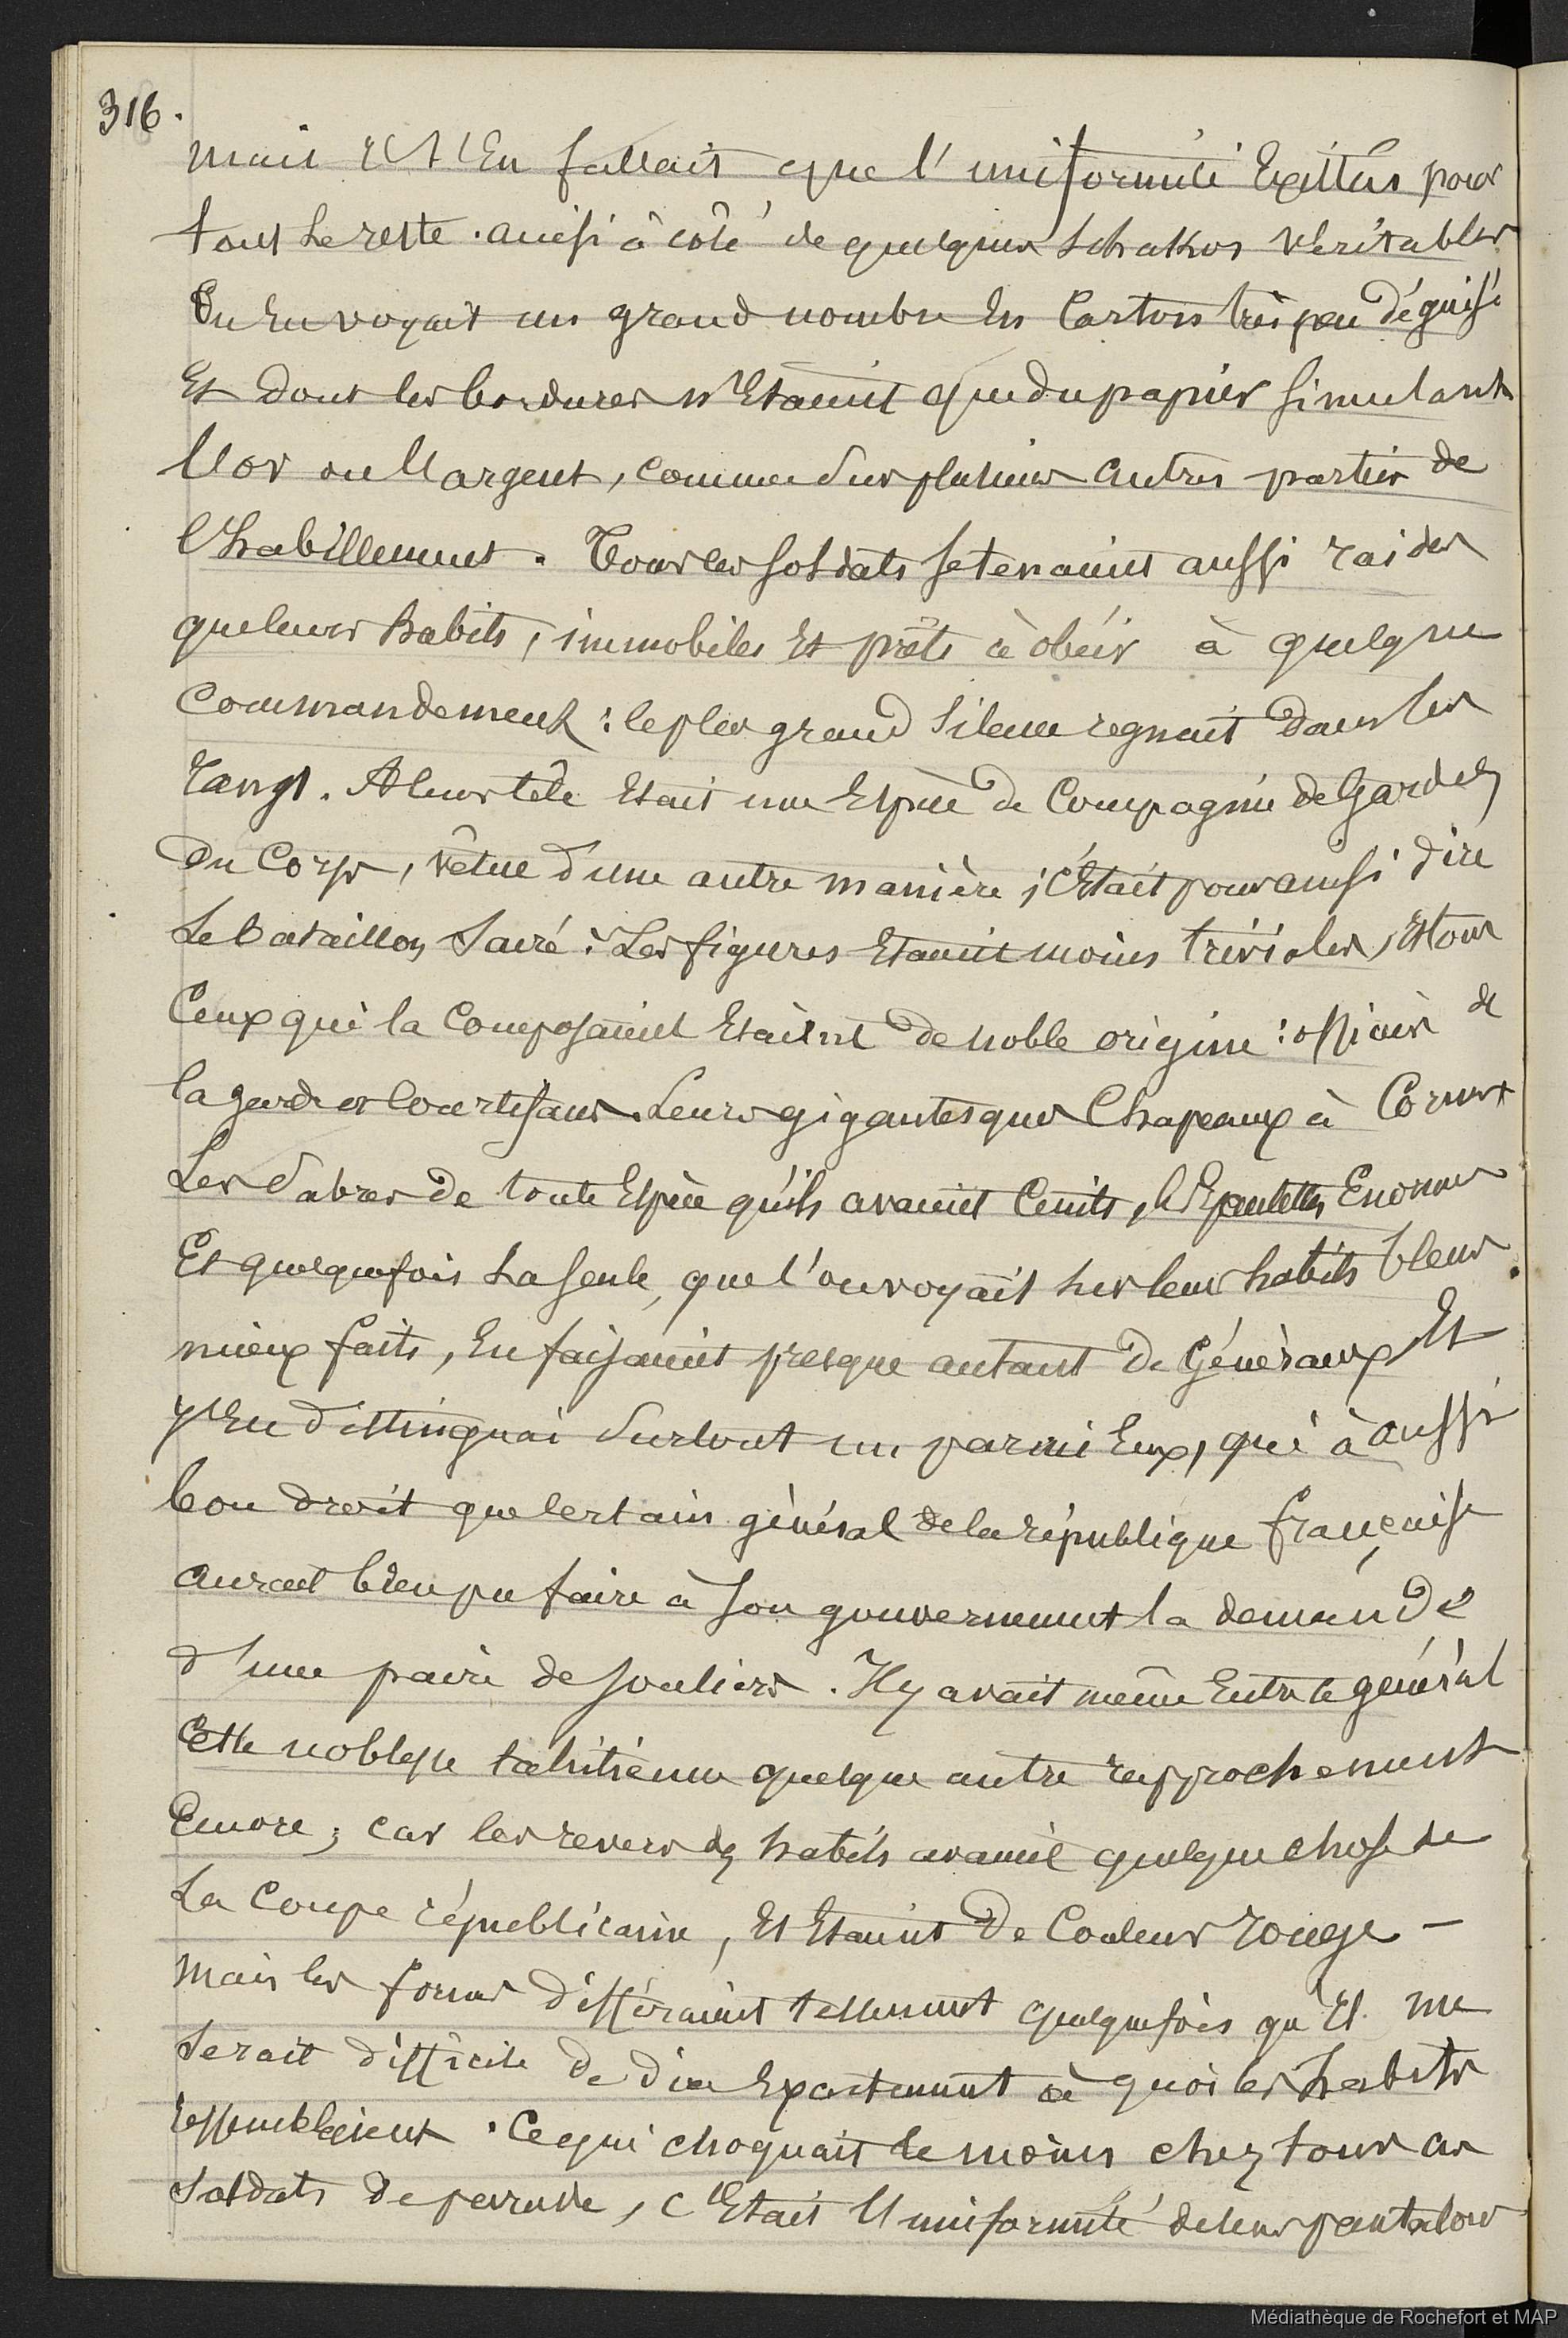 316.
mais il s'en fallait que l'uniformité existat pour
tout le reste. ainsi à côté de quelques schakos véritables
on en voyait un grand nombre en carton très peu déguisé
et dont les bordures n'etaient que du papier simulant
l'or ou l'argent, comme sur plusieurs autres parties de
l'habillement. Tous les soldats se tenaient aussi raides
que leurs habits, immobiles et prêts à obéir à quelque
commandement : le plus grand silence regnait dans les
rangs. A leur tête etait une espèce de compagnie de gardes
du corps, vêtue d'une autre manière ; c'etait pour ainsi dire
le bataillon sacré : Les figures etaient moins triviales, et tous
ceux qui la composaient etaient de noble origine : officiers de
la garde et courtisans. Leurs gigantesques chapeaux à cornes
les sabres de toute espèce qu'ils avaient ceints, les epaulettes enormes
et quelquefois la seule, que l'on voyait sur leurs habits bleus
mieux faits, en faisaient presque autant de généraux et
j'en distinguai surtout un parmi eux, qui à aussi
bon droit que certain général de la république française
aurait bien pu faire à son gouvernement la demande
d'une paire de souliers. Il y avait même entre le général
cette noblesse tahitienne quelque autre rapprochement
encore ; car les revers des habits avaient quelque chose de
la coupe républicaine, et etaient de couleur rouge –
mais les formes différaient tellement quelquefois qu'il me
serait difficile de dire exactement à quoi les habits
ressemblaient. Ce qui choquait le moins chez tous ces
soldats de parade, c'etait l'uniformité de leurs pantalons
Médiathèque de Rochefort et MAP